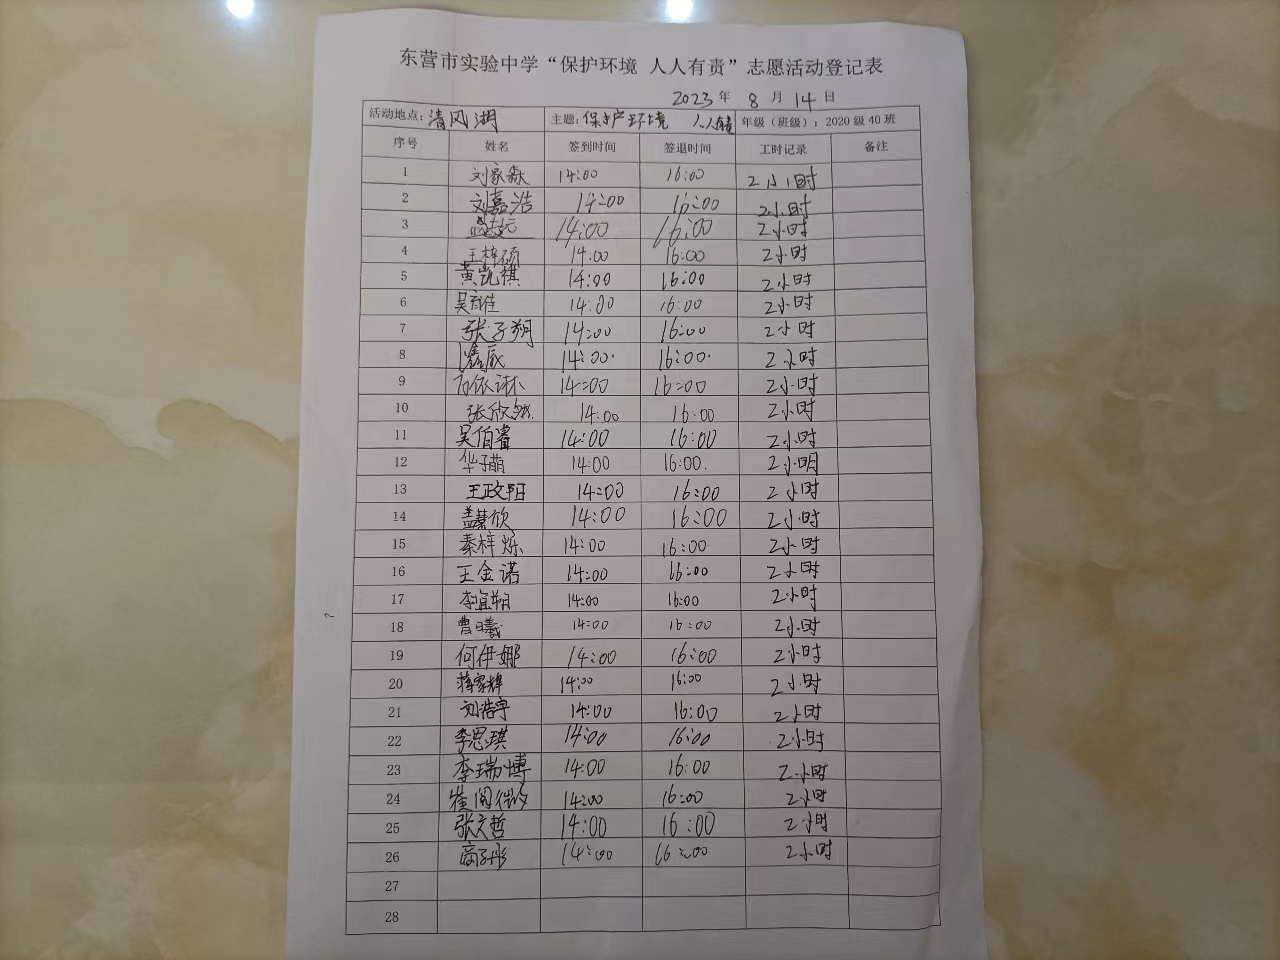 东营市实验中学“保护环境 人人有责”志愿活动登记表
2023 年 8 月 14 日
活动地点：清风湖 主题：保护环境 人人有责 年级（班级）：2020 级 40 班
序号 姓名 签到时间 签退时间 工时记录 备注
1 刘家森 14:00 16:00 2小时
2 刘嘉浩 14:00 16:00 2小时
3 14:00 16:00 2小时
4 王梓硕 14:00 16:00 2小时
5 黄凯祺 14:00 16:00 2小时
6 14:00 16:00 2小时
7 张子朔 14:00 16:00 2小时
8 14:00 16:00 2小时
9 14:00 16:00 2小时
10 张欣然 14:00 16:00 2小时
11 吴伯睿 14:00 16:00 2小时
12 华子萌 14:00 16:00 2小时
13 王政阳 14:00 16:00 2小时
14 14:00 16:00 2小时
15 秦梓烁 14:00 16:00 2小时
16 王金诺 14:00 16:00 2小时
17 李宜朔 14:00 16:00 2小时
18 曹日曦 14:00 16:00 2小时
19 何伊娜 14:00 16:00 2小时
20 蒋家辉 14:00 16:00 2小时
21 刘浩宇 14:00 16:00 2小时
22 李思琪 14:00 16:00 2小时
23 李瑞博 14:00 16:00 2小时
24 14:00 16:00 2小时
25 张文哲 14:00 16:00 2小时
26 高子彤 14:00 16:00 2小时
27
28